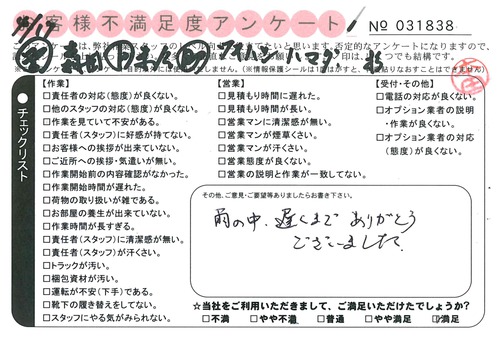 お客様不満足度アンケート
№ 031838
チェックリスト
【作業】
□責任者の対応(態度)が良くない。
□他のスタッフの対応(態度)が良くない。
□作業を見ていて不安がある。
□責任者(スタッフ)に好感が持てない。
□お客様への挨拶が出来ていない。
□ご近所への挨拶・気遣いが無い。
□作業開始前の内容確認がなかった。
□作業開始時間が遅れた。
□荷物の取り扱いが雑である。
□お部屋の養生が出来ていない。
□作業時間が長すぎる。
□責任者(スタッフ)に清潔感が無い。
□責任者(スタッフ)が汗くさい。
□トラックが汚い。
□梱包資材が汚い。
□運転が不安(下手)である。
□靴下の履き替えをしてない。
□スタッフにやる気がみられない。
【営業】
□見積もり時間に遅れた。
□見積もり時間が長い。
□営業マンに清潔感が無い。
□営業マンが煙草くさい。
□営業マンが汗くさい。
□営業態度が良くない。
□営業の説明と作業が一致してない。
【受付・その他】
□電話の対応が良くない。
□オプション業者の説明
・作業が良くない。
□オプション業者の対応
(態度)が良くない。
その他、ご意見・ご要望等ありましたらお書き下さい。
雨の中、遅くまで ありがとう
ございました
☆当社をご利用いただきまして、ご満足いただけたでしょうか?
□不満 □やや不満 □普通 □やや満足 □満足